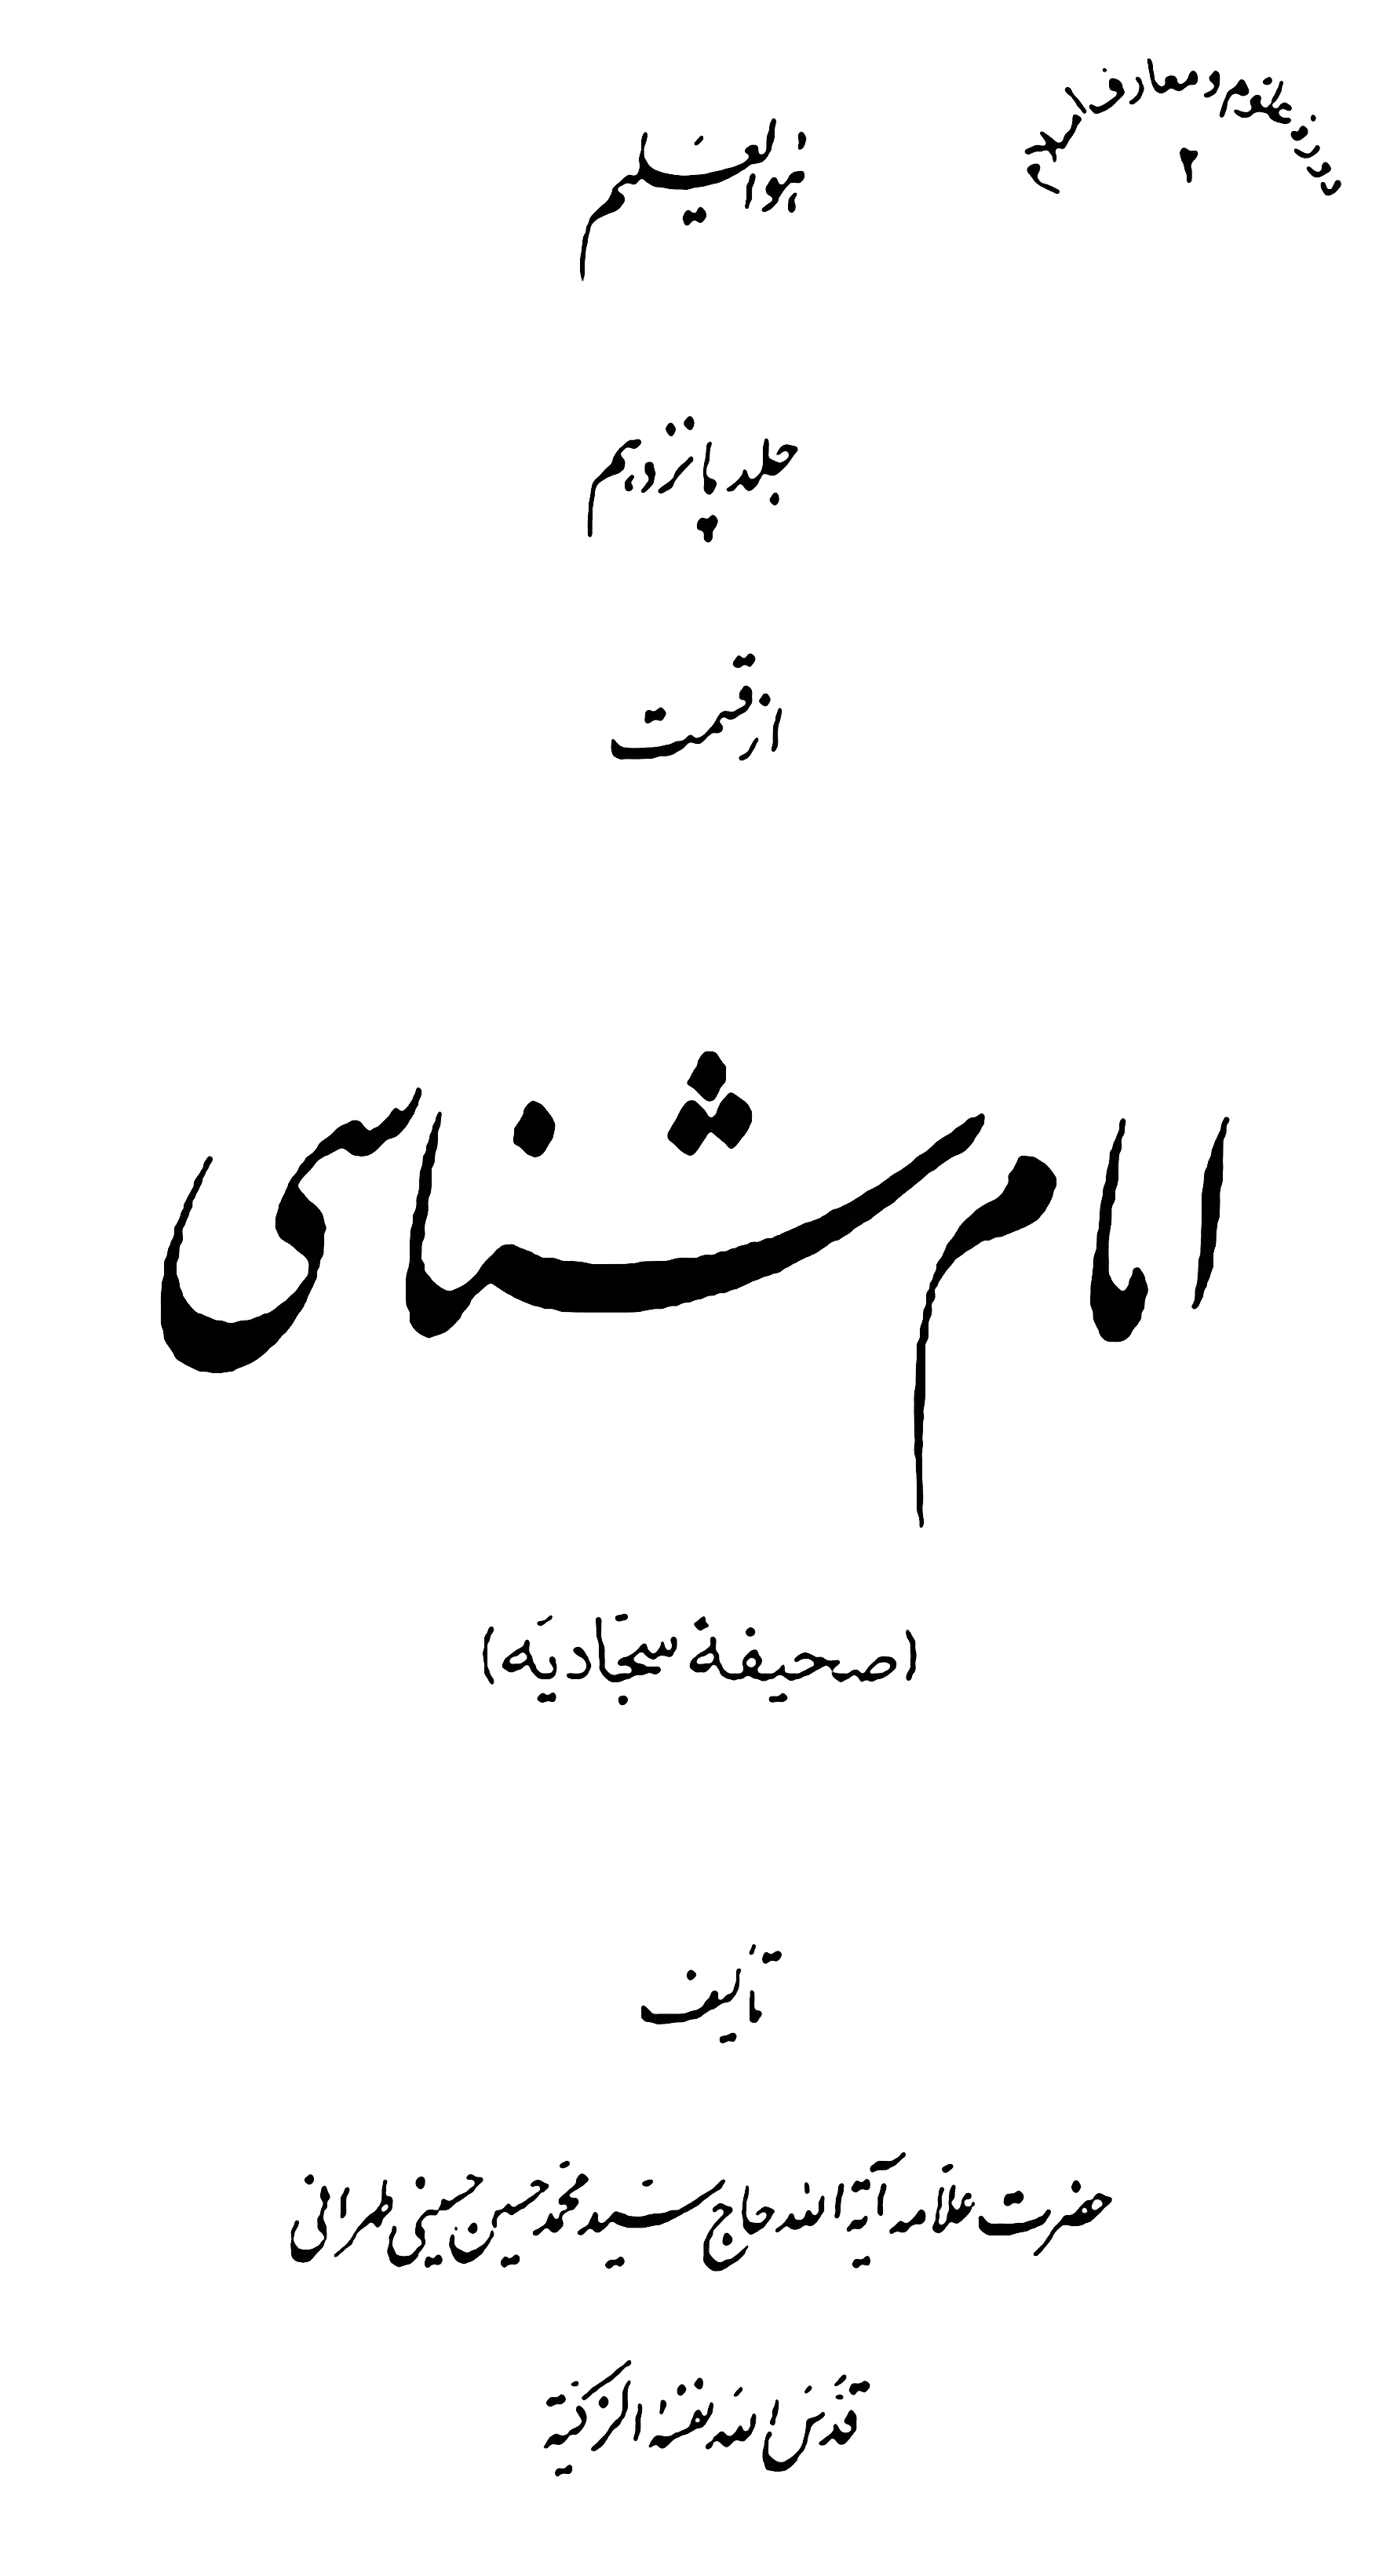 دورهٔ علوم و معارف اسلام
۲
هو العلیم
جلد پانزدهم
از قسمت
امام شناسی
(صحیفهٔ سجّادیّه)
تألیف
حضرت علّامه آیة الله حاج سیّد محمّد حسین حسینی طهرانی
قدّس الله نفسه الزکیّة